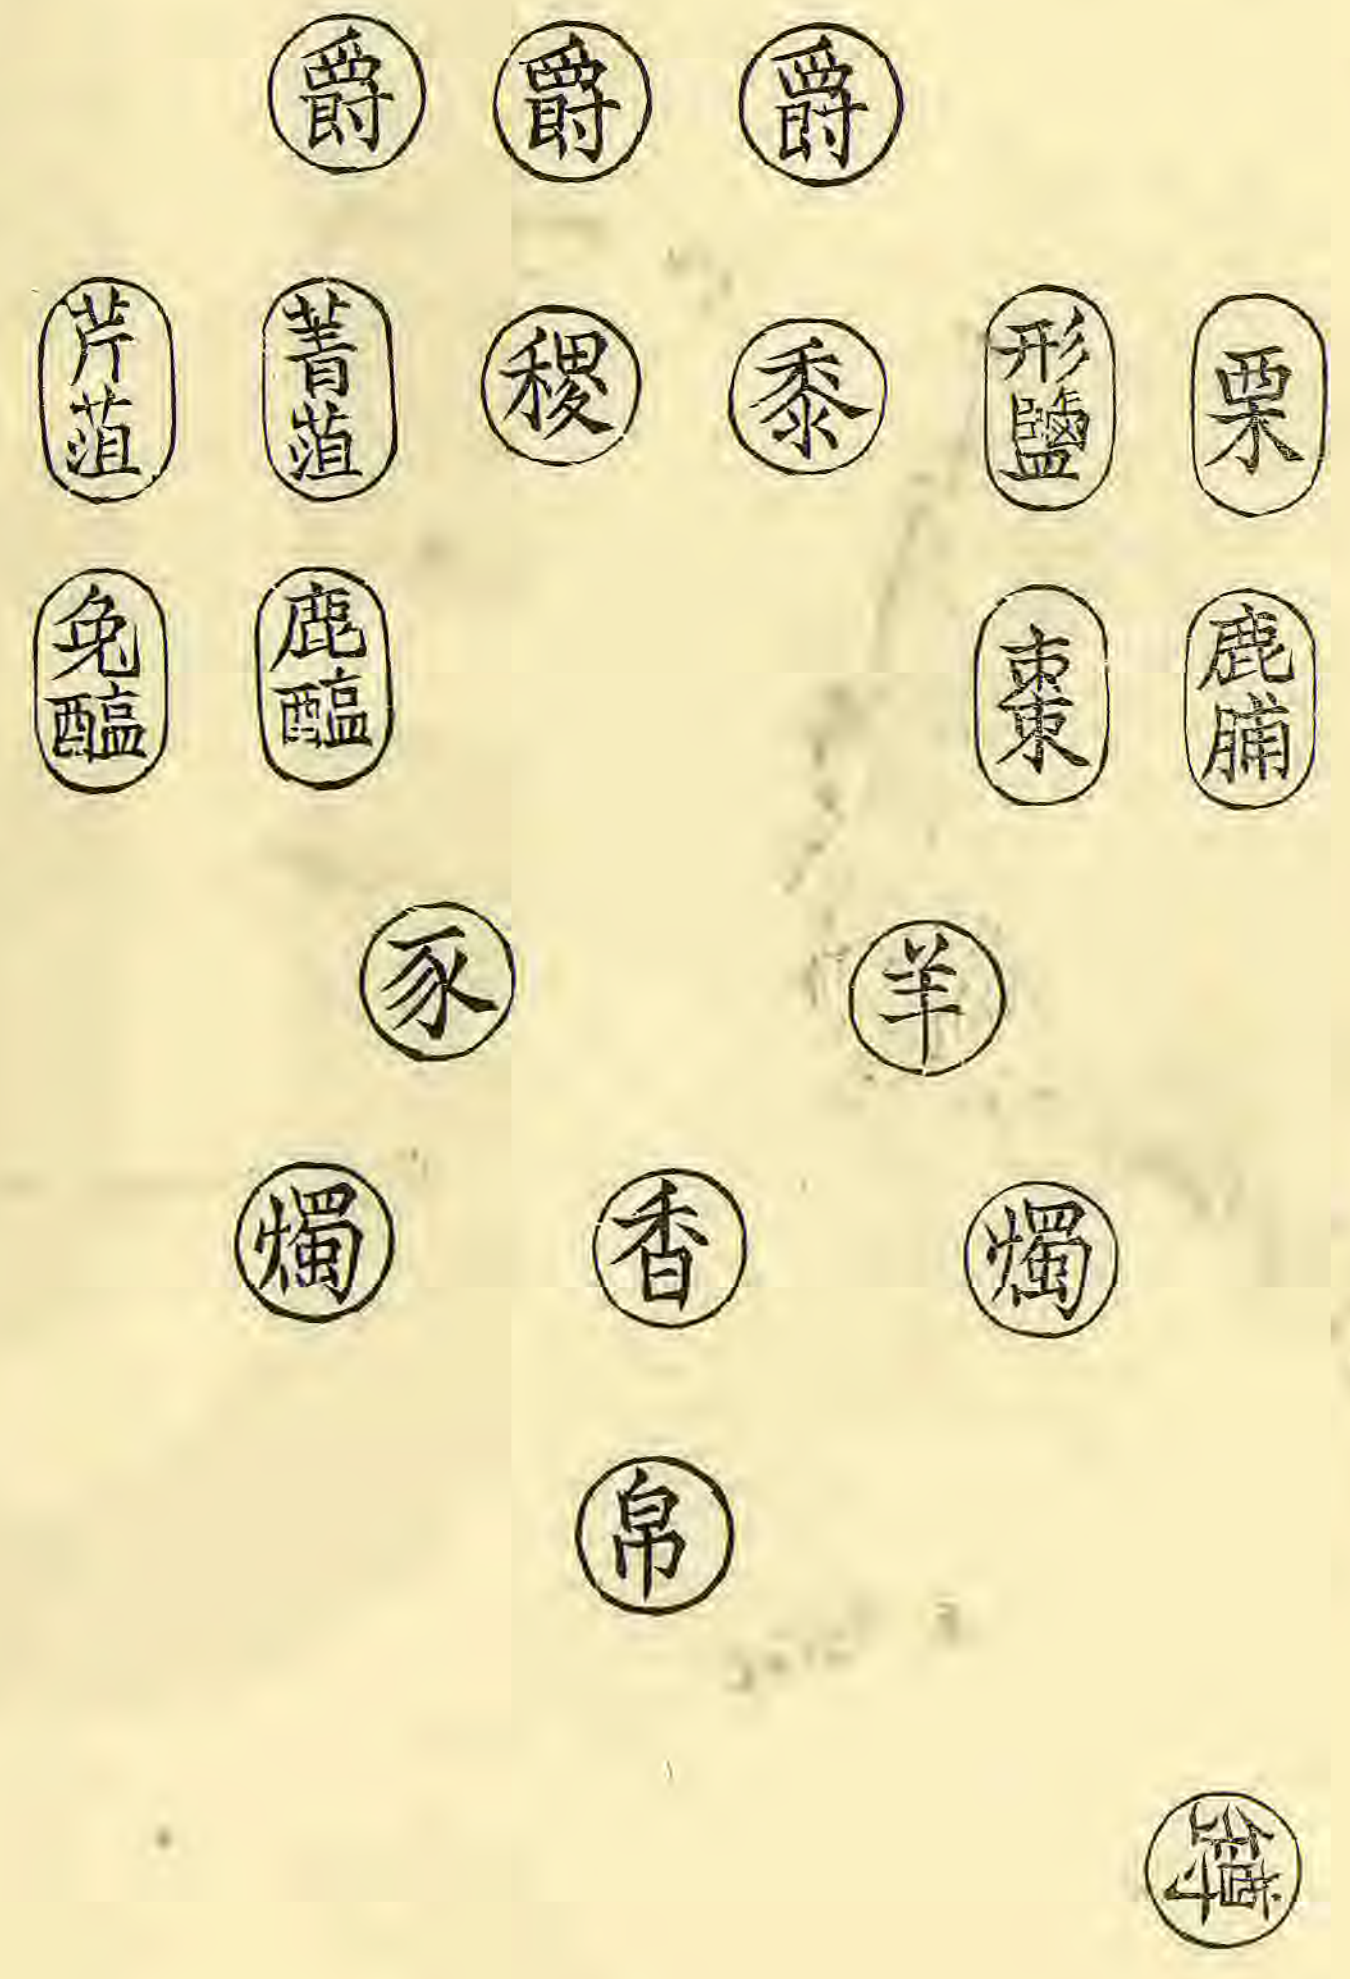 爵
爵
爵
栗
形鹽
黍
稷
菁菹
芹菹
鹿脯
棗
鹿醢
兔醢
羊
豕
燭
香
燭
帛